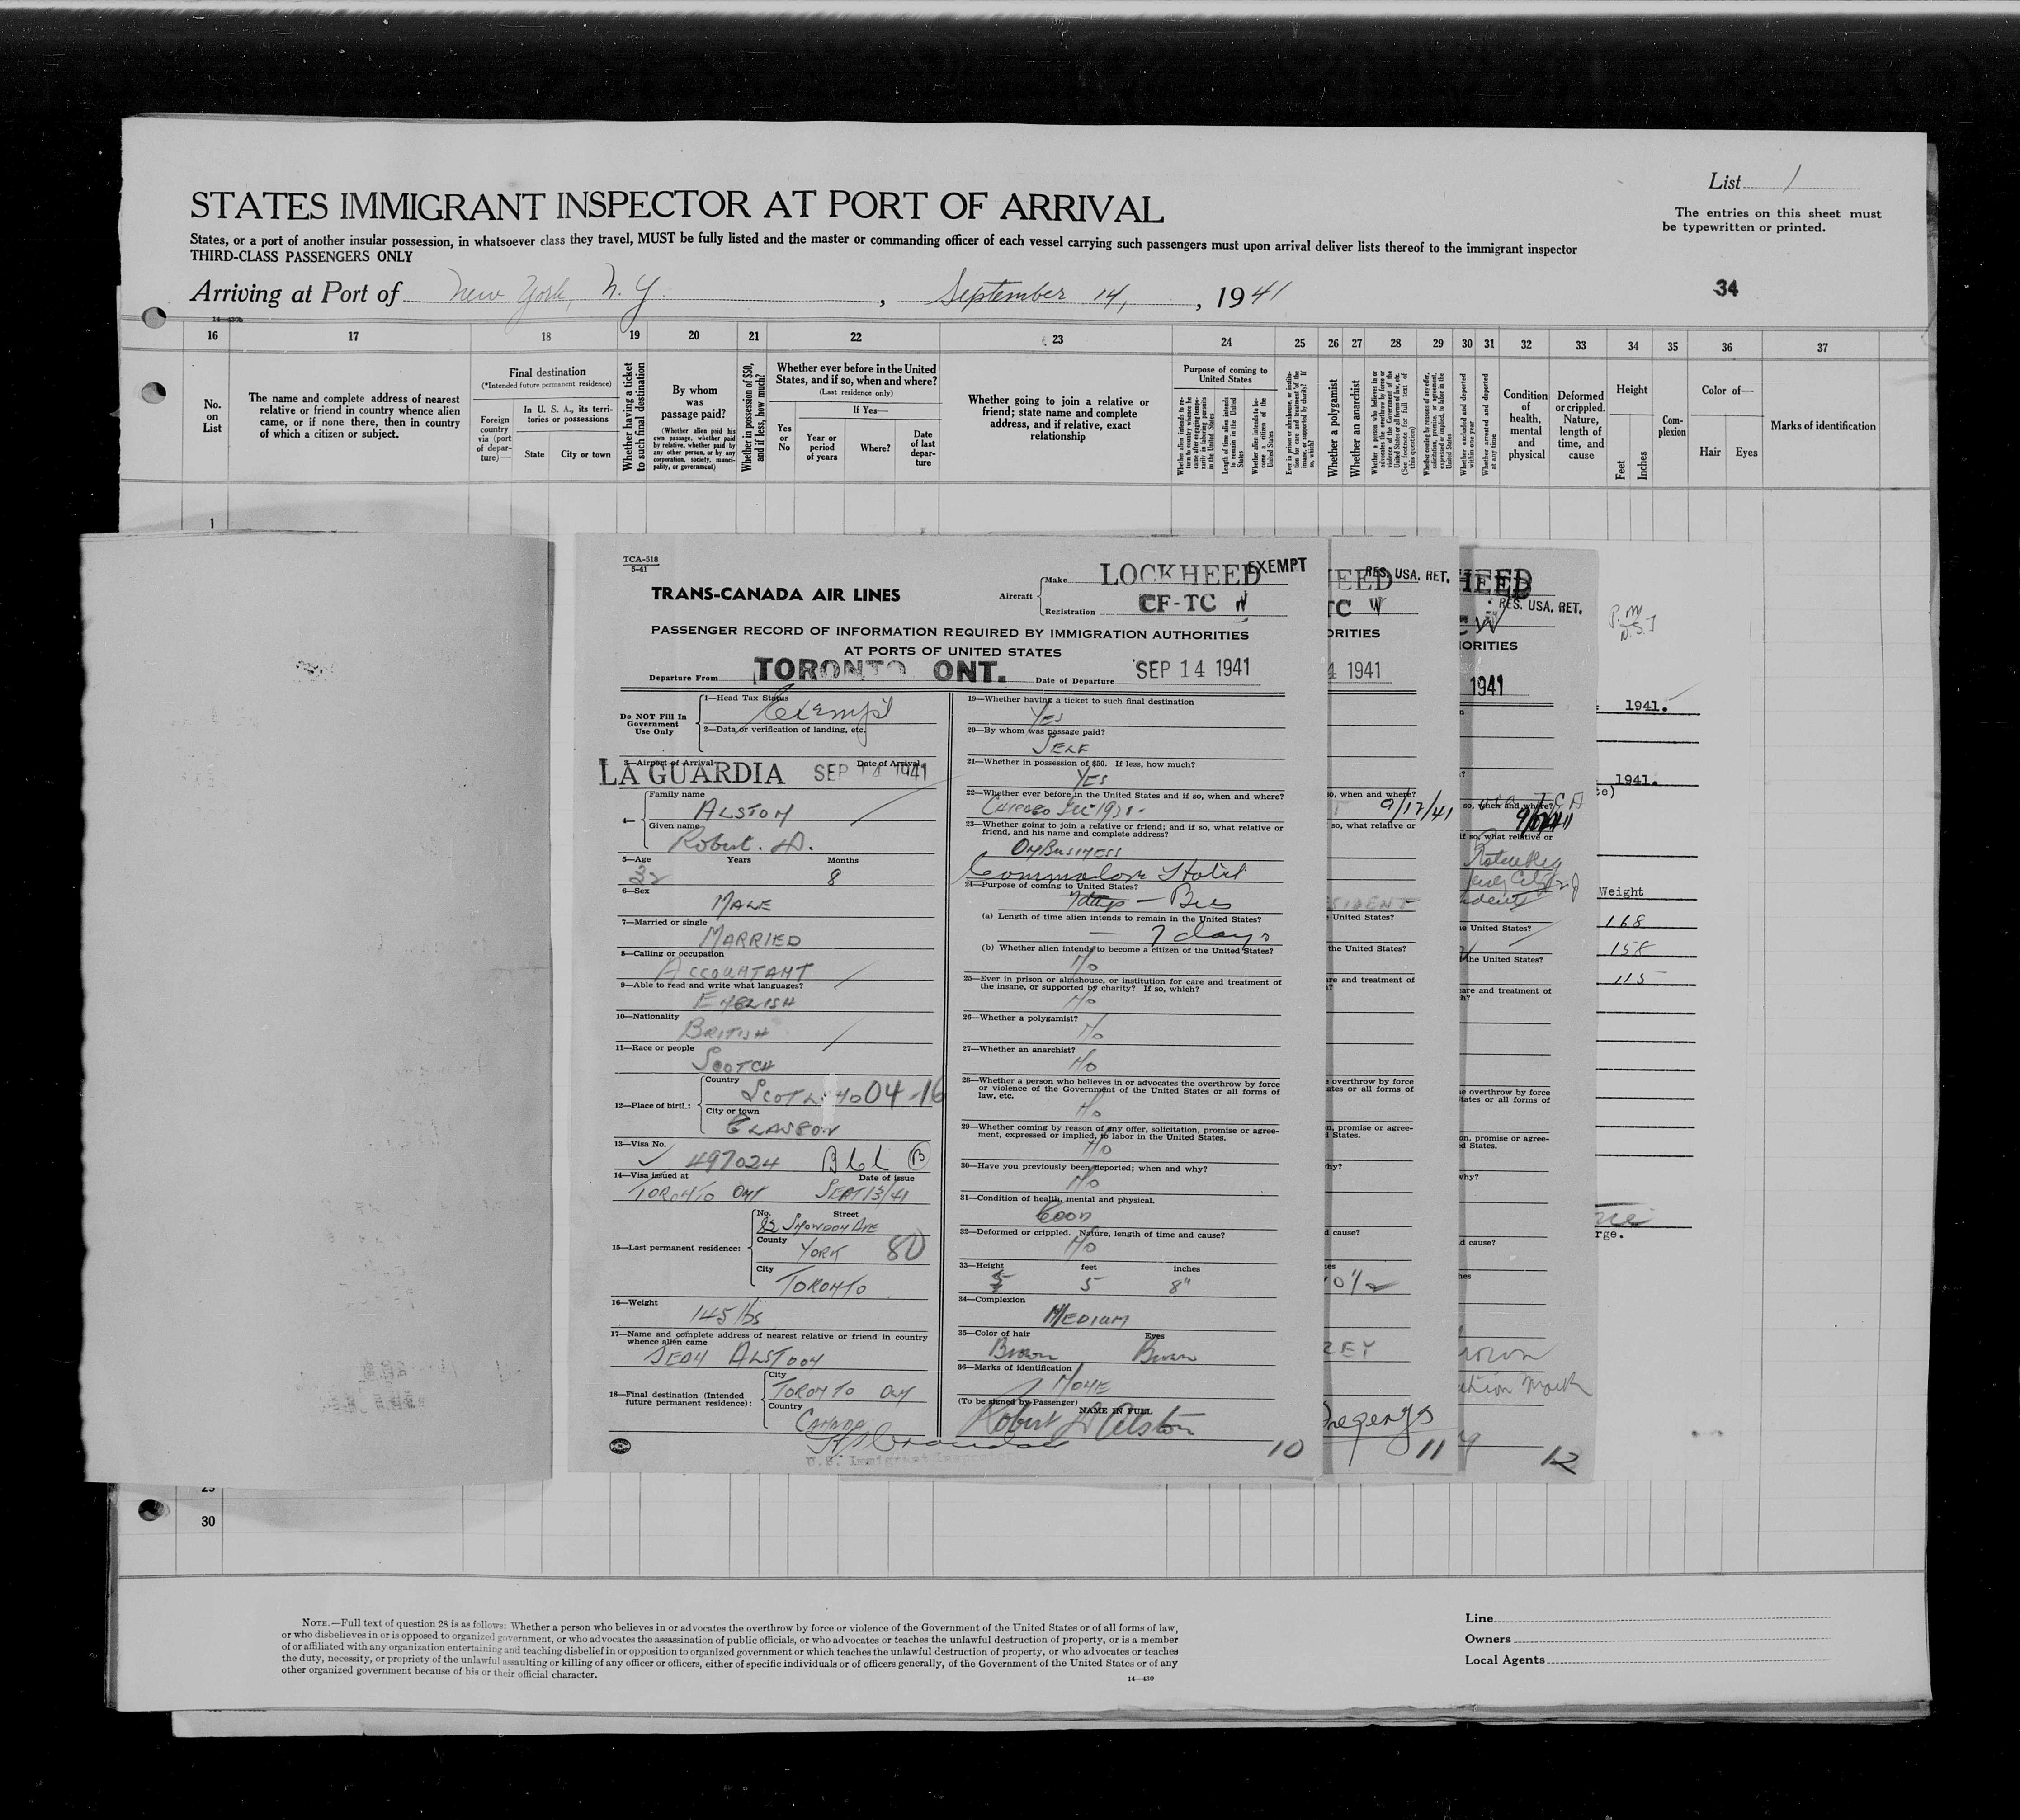 List 1
STATES IMMIGRANT INSPECTOR AT PORT OF ARRIVAL
The entries on this sheet must
be typewritten or printed.
States, or a port of another insular possession, in whatsoever class they travel, MUST be fully listed and the master or commanding officer of each vessel carrying such passengers must upon arrival deliver lists thereof to the immigrant inspector
THIRD-CLASS PASSENGERS ONLY
Arriving at Port of New York, N. Y., September 14, 1941
34
14—430b
16 17 18 19 20 21 22 23 24 25 26 27 28 29 30 31 32 33 34 35 36 37
No. on List
The name and complete address of nearest
relative or friend in country whence alien
came, or if none there, then in country
of which a citizen or subject.
Final destination
(*Intended future permanent residence)
Foreign country via (port of departure)—
In U. S. A., its territories or possessions
State
City or town
Whether having a ticket to such final destination
By whom was passage paid?
(Whether alien paid his own passage, whether paid by relative, whether paid by any other person, or by any corporation, society, municipality, or government)
Whether in possession of $50, and if less, how much?
Whether ever before in the United
States, and if so, when and where?
(Last residence only)
Yes or No
If Yes—
Year or period of years
Where?
Date of last departure
Whether going to join a relative or
friend; state name and complete
address, and if relative, exact
relationship
Purpose of coming to United States
Whether alien intends to return to country whence he came after engaging temporarily in laboring pursuits in the United States
Length of time alien intends to remain in the United States
Whether alien intends to become a citizen of the United States
Whether a polygamist
Whether an anarchist
Whether excluded and deported within one year
Whether arrested and deported at any time
Condition of health, mental and physical
Deformed or crippled. Nature, length of time, and cause
Height
Feet
Inches
Complexion
Color of—
Hair
Eyes
Marks of identification
1
TCA-518
5-41
TRANS-CANADA AIR LINES
Aircraft
Make LOCKHEED
EXEMPT
Registration CF-TC W
PASSENGER RECORD OF INFORMATION REQUIRED BY IMMIGRATION AUTHORITIES
AT PORTS OF UNITED STATES
Departure From TORONTO ONT. Date of Departure SEP 14 1941
Do NOT Fill In
Government
Use Only
1—Head Tax Status
Exempt
2—Data or verification of landing, etc.
3—Airport of Arrival Date of Arrival
LA GUARDIA SEP 14 1941
4—
Family name
ALSTON
Given name
Robert. D.
5—Age Years Months
8
6—Sex
MALE
7—Married or single
MARRIED
8—Calling or occupation
ACCOUNTANT
9—Able to read and write what languages?
ENGLISH
10—Nationality
BRITISH
11—Race or people
SCOTCH
12—Place of birth:
Country
SCOTLAND 04-16
City or town
GLASGOW
13—Visa No.
497024 B
14—Visa issued at Date of issue
TORONTO ONT SEPT 13/41
15—Last permanent residence:
No. Street
82 SNOWDON AVE
County
YORK 80
City
TORONTO
16—Weight
145 lbs
17—Name and complete address of nearest relative or friend in country
whence alien came
JEAN ALSTON
18—Final destination (Intended
future permanent residence):
City
TORONTO ONT
Country
CANADA
U.S. Immigrant Inspector
19—Whether having a ticket to such final destination
YES
20—By whom was passage paid?
SELF
21—Whether in possession of $50. If less, how much?
YES
22—Whether ever before in the United States and if so, when and where?
CHICAGO DEC 1938
23—Whether going to join a relative or friend; and if so, what relative or
friend, and his name and complete address?
ON BUSINESS
Commodore Hotel
24—Purpose of coming to United States?
7 days — Bus
(a) Length of time alien intends to remain in the United States?
— 7 days
(b) Whether alien intends to become a citizen of the United States?
No
25—Ever in prison or almshouse, or institution for care and treatment of
the insane, or supported by charity? If so, which?
No
26—Whether a polygamist?
No
27—Whether an anarchist?
No
28—Whether a person who believes in or advocates the overthrow by force
or violence of the Government of the United States or all forms of
law, etc.
No
29—Whether coming by reason of any offer, solicitation, promise or agree-
ment, expressed or implied, to labor in the United States.
No
30—Have you previously been deported; when and why?
No
31—Condition of health, mental and physical.
GOOD
32—Deformed or crippled. Nature, length of time and cause?
No
33—Height feet inches
5 8"
34—Complexion
MEDIUM
35—Color of hair Eyes
Brown Brown
36—Marks of identification
NONE
(To be signed by Passenger) NAME IN FULL
Robert D Alston
10
RES. USA. RET.
TC W
ORITIES
4 1941
so, when and where?
9/12/41
so, what relative or
United States?
the United States?
are and treatment of
overthrow by force
ates or all forms of
n, promise or agree-
States.
hy?
d cause?
REY
11
HEED
RES. USA. RET.
CW
ORITIES
1941
so, when and where?
if so, what relative or
United States?
the United States?
care and treatment of
overthrow by force
States or all forms of
on, promise or agree-
d States.
why?
d cause?
hes
12
1941.
1941.
Weight
168
158
115
rge.
30
NOTE.—Full text of question 28 is as follows: Whether a person who believes in or advocates the overthrow by force or violence of the Government of the United States or of all forms of law,
or who disbelieves in or is opposed to organized government, or who advocates the assassination of public officials, or who advocates or teaches the unlawful destruction of property, or is a member
of or affiliated with any organization entertaining and teaching disbelief in or opposition to organized government or which teaches the unlawful destruction of property, or who advocates or teaches
the duty, necessity, or propriety of the unlawful assaulting or killing of any officer or officers, either of specific individuals or of officers generally, of the Government of the United States or of any
other organized government because of his or their official character.
14—430
Line
Owners
Local Agents